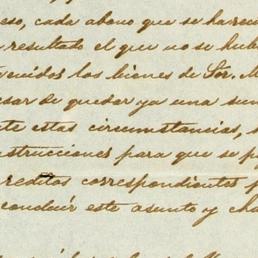 eso, cada abono que se haré
resultado el que no se hub
idos los bienes de Sor. M
sar de quedar ya una su
te estas circunstancias, s
strucciones para que se p
reditos correspondientes p
concluir este asunto y ch